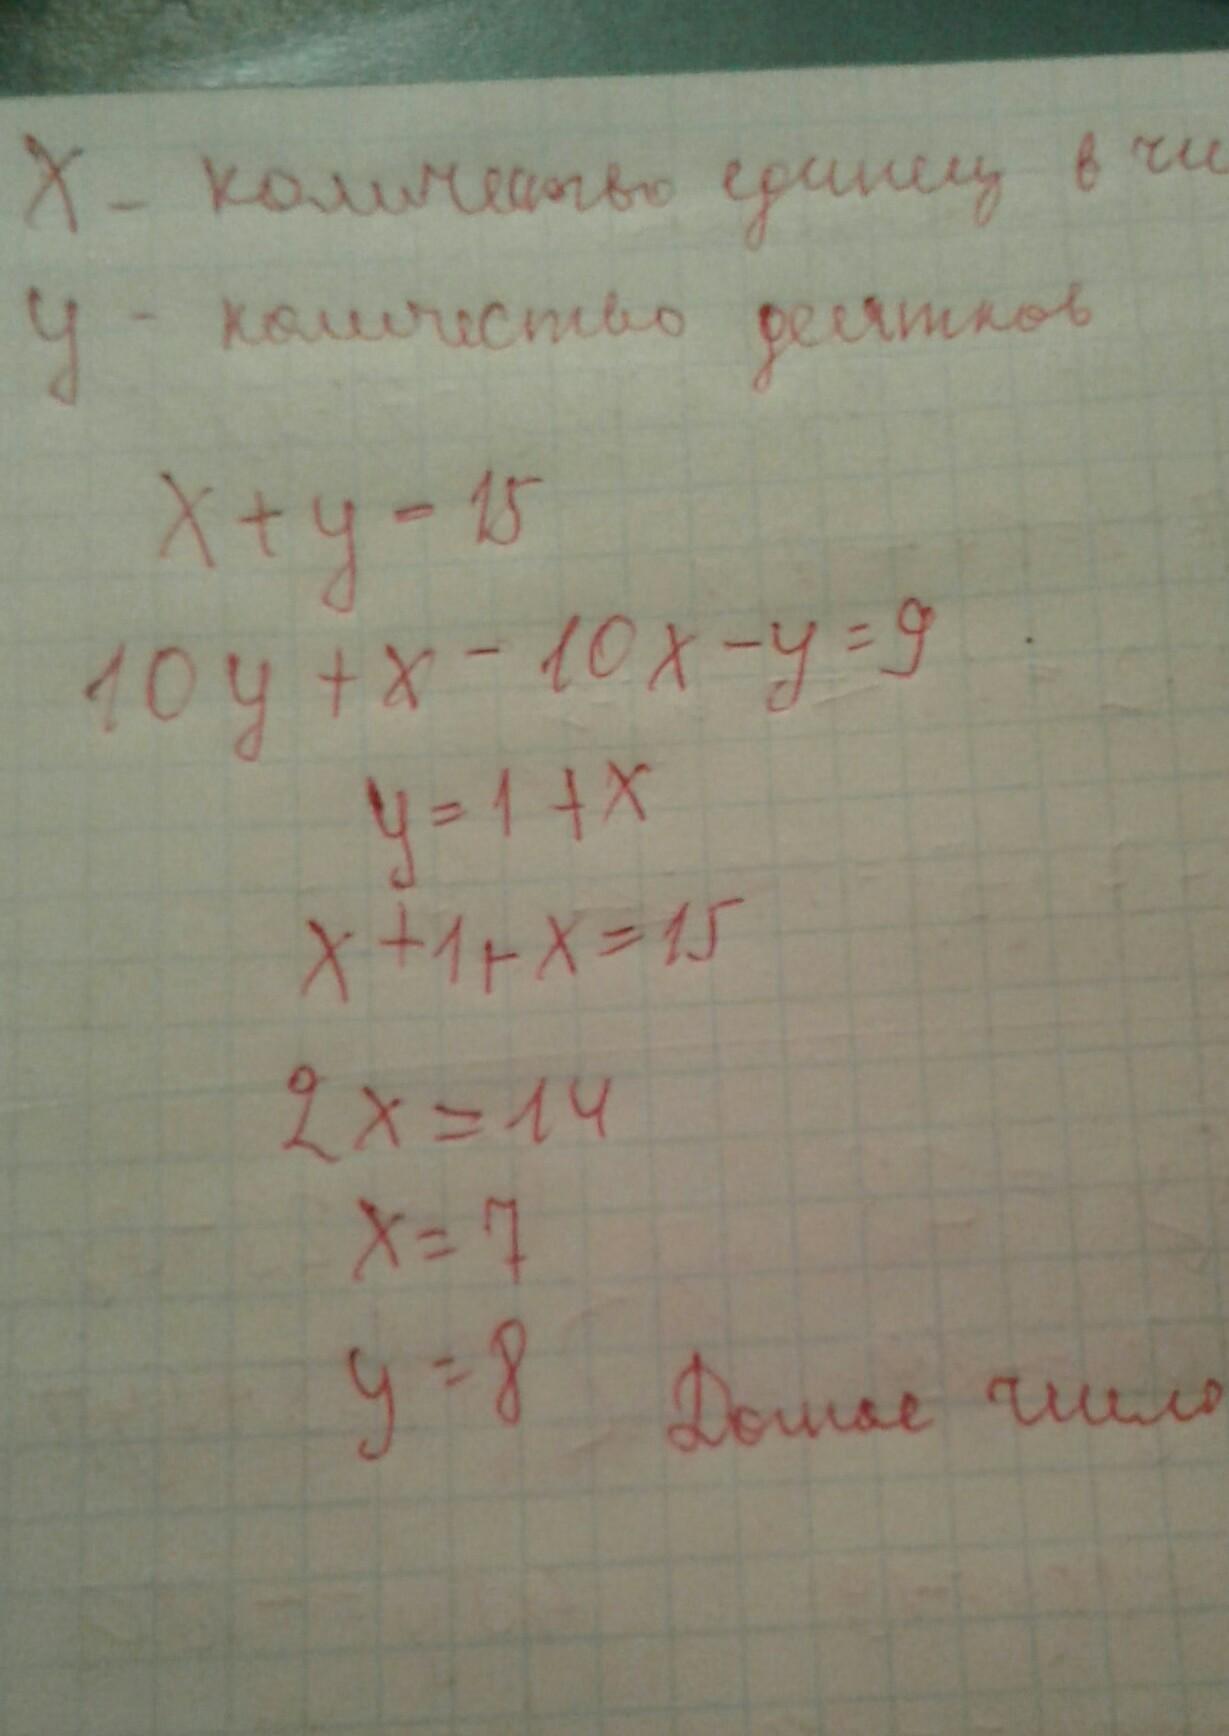 X - количество единиц в чи
y - количество десятков
x + y - 15
10y + x - 10x - y = 9
y = 1 + x
x + 1 + x = 15
2x = 14
x = 7
y = 8 Данное число